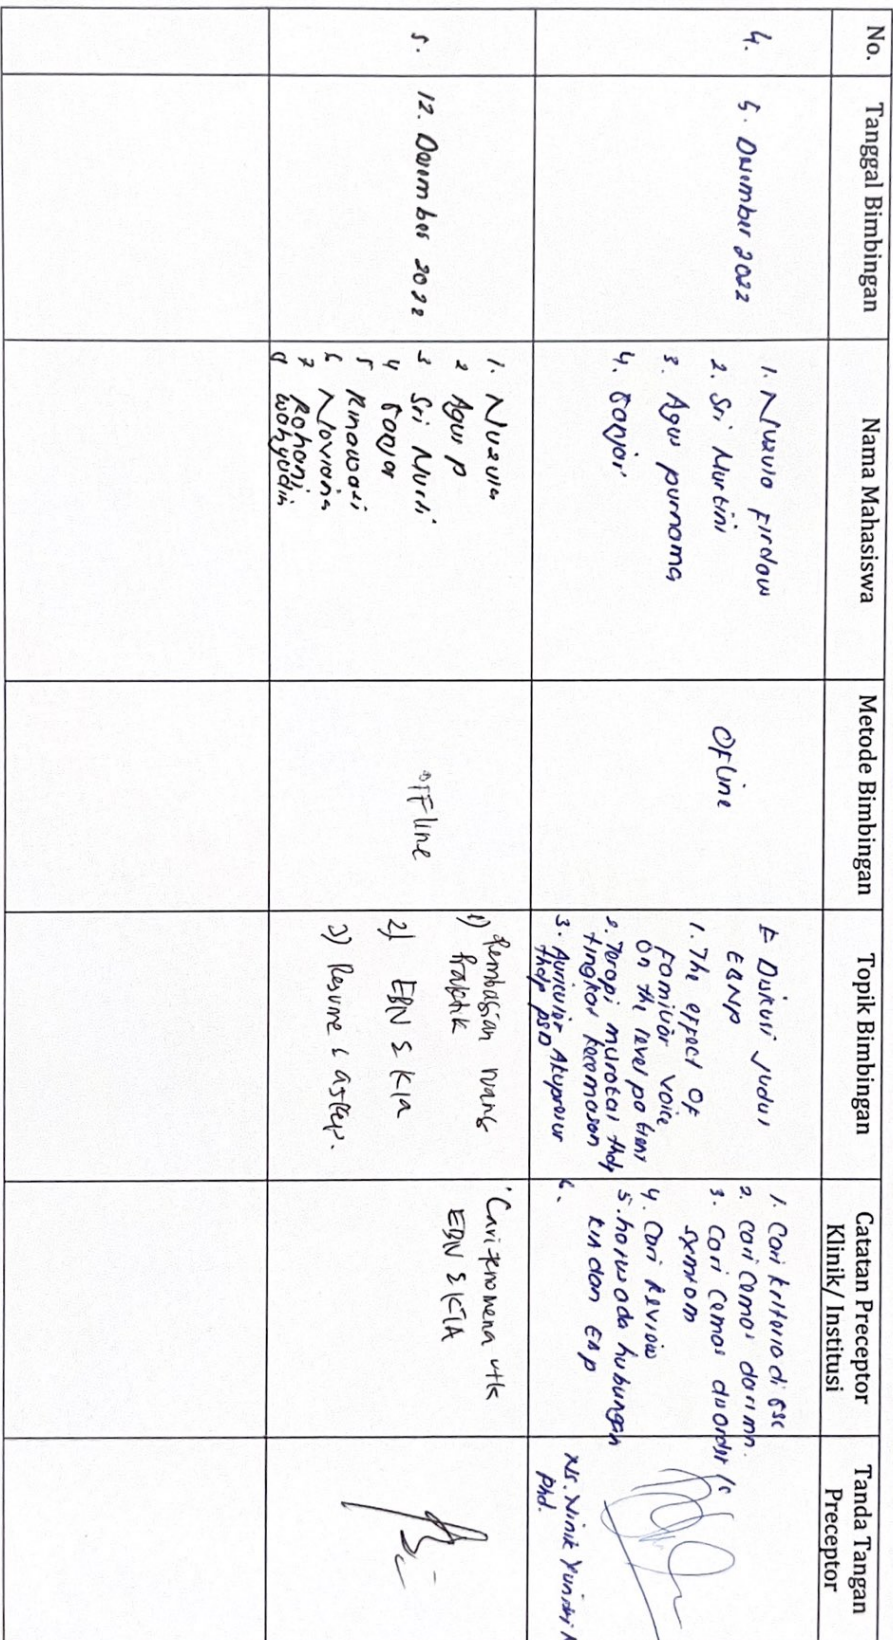 No.
Tanggal Bimbingan
Nama Mahasiswa
Metode Bimbingan
Topik Bimbingan
Catatan Preceptor
Klinik/ Institusi
Tanda Tangan
Preceptor
4.
5. Desember 2022
1. Nuzula Firdaus
2. Sri Murtini
3. Agus purnama
4. Ganjar
Ofline
Diskusi judul
EBNP
1. The effect OF
Familiar voice
on the level patient
2. Terapi murotal thdp
tingkat kecemasan
3. Auricular Akupresur
thdp PSD
1. Cari kriteria di
2. Cari cemas dari
3. Cari cemas
4. Cari Review
5. harus ada hubungan
KIA dan EBP
6.
Ns. Ninik Yunitri
Phd.
5.
12. Desember 2022
1. Nuzula
2 Agus P
3 Sri Murti
4 Ganjar
5 Rinawati
6 Novrina
7 Rohani
Wahyudin
OFFline
1) Pembagian ruang
Praktik
2) EBN & KIA
3) Resume & askep.
Cari fenomena utk
EBN & KIA